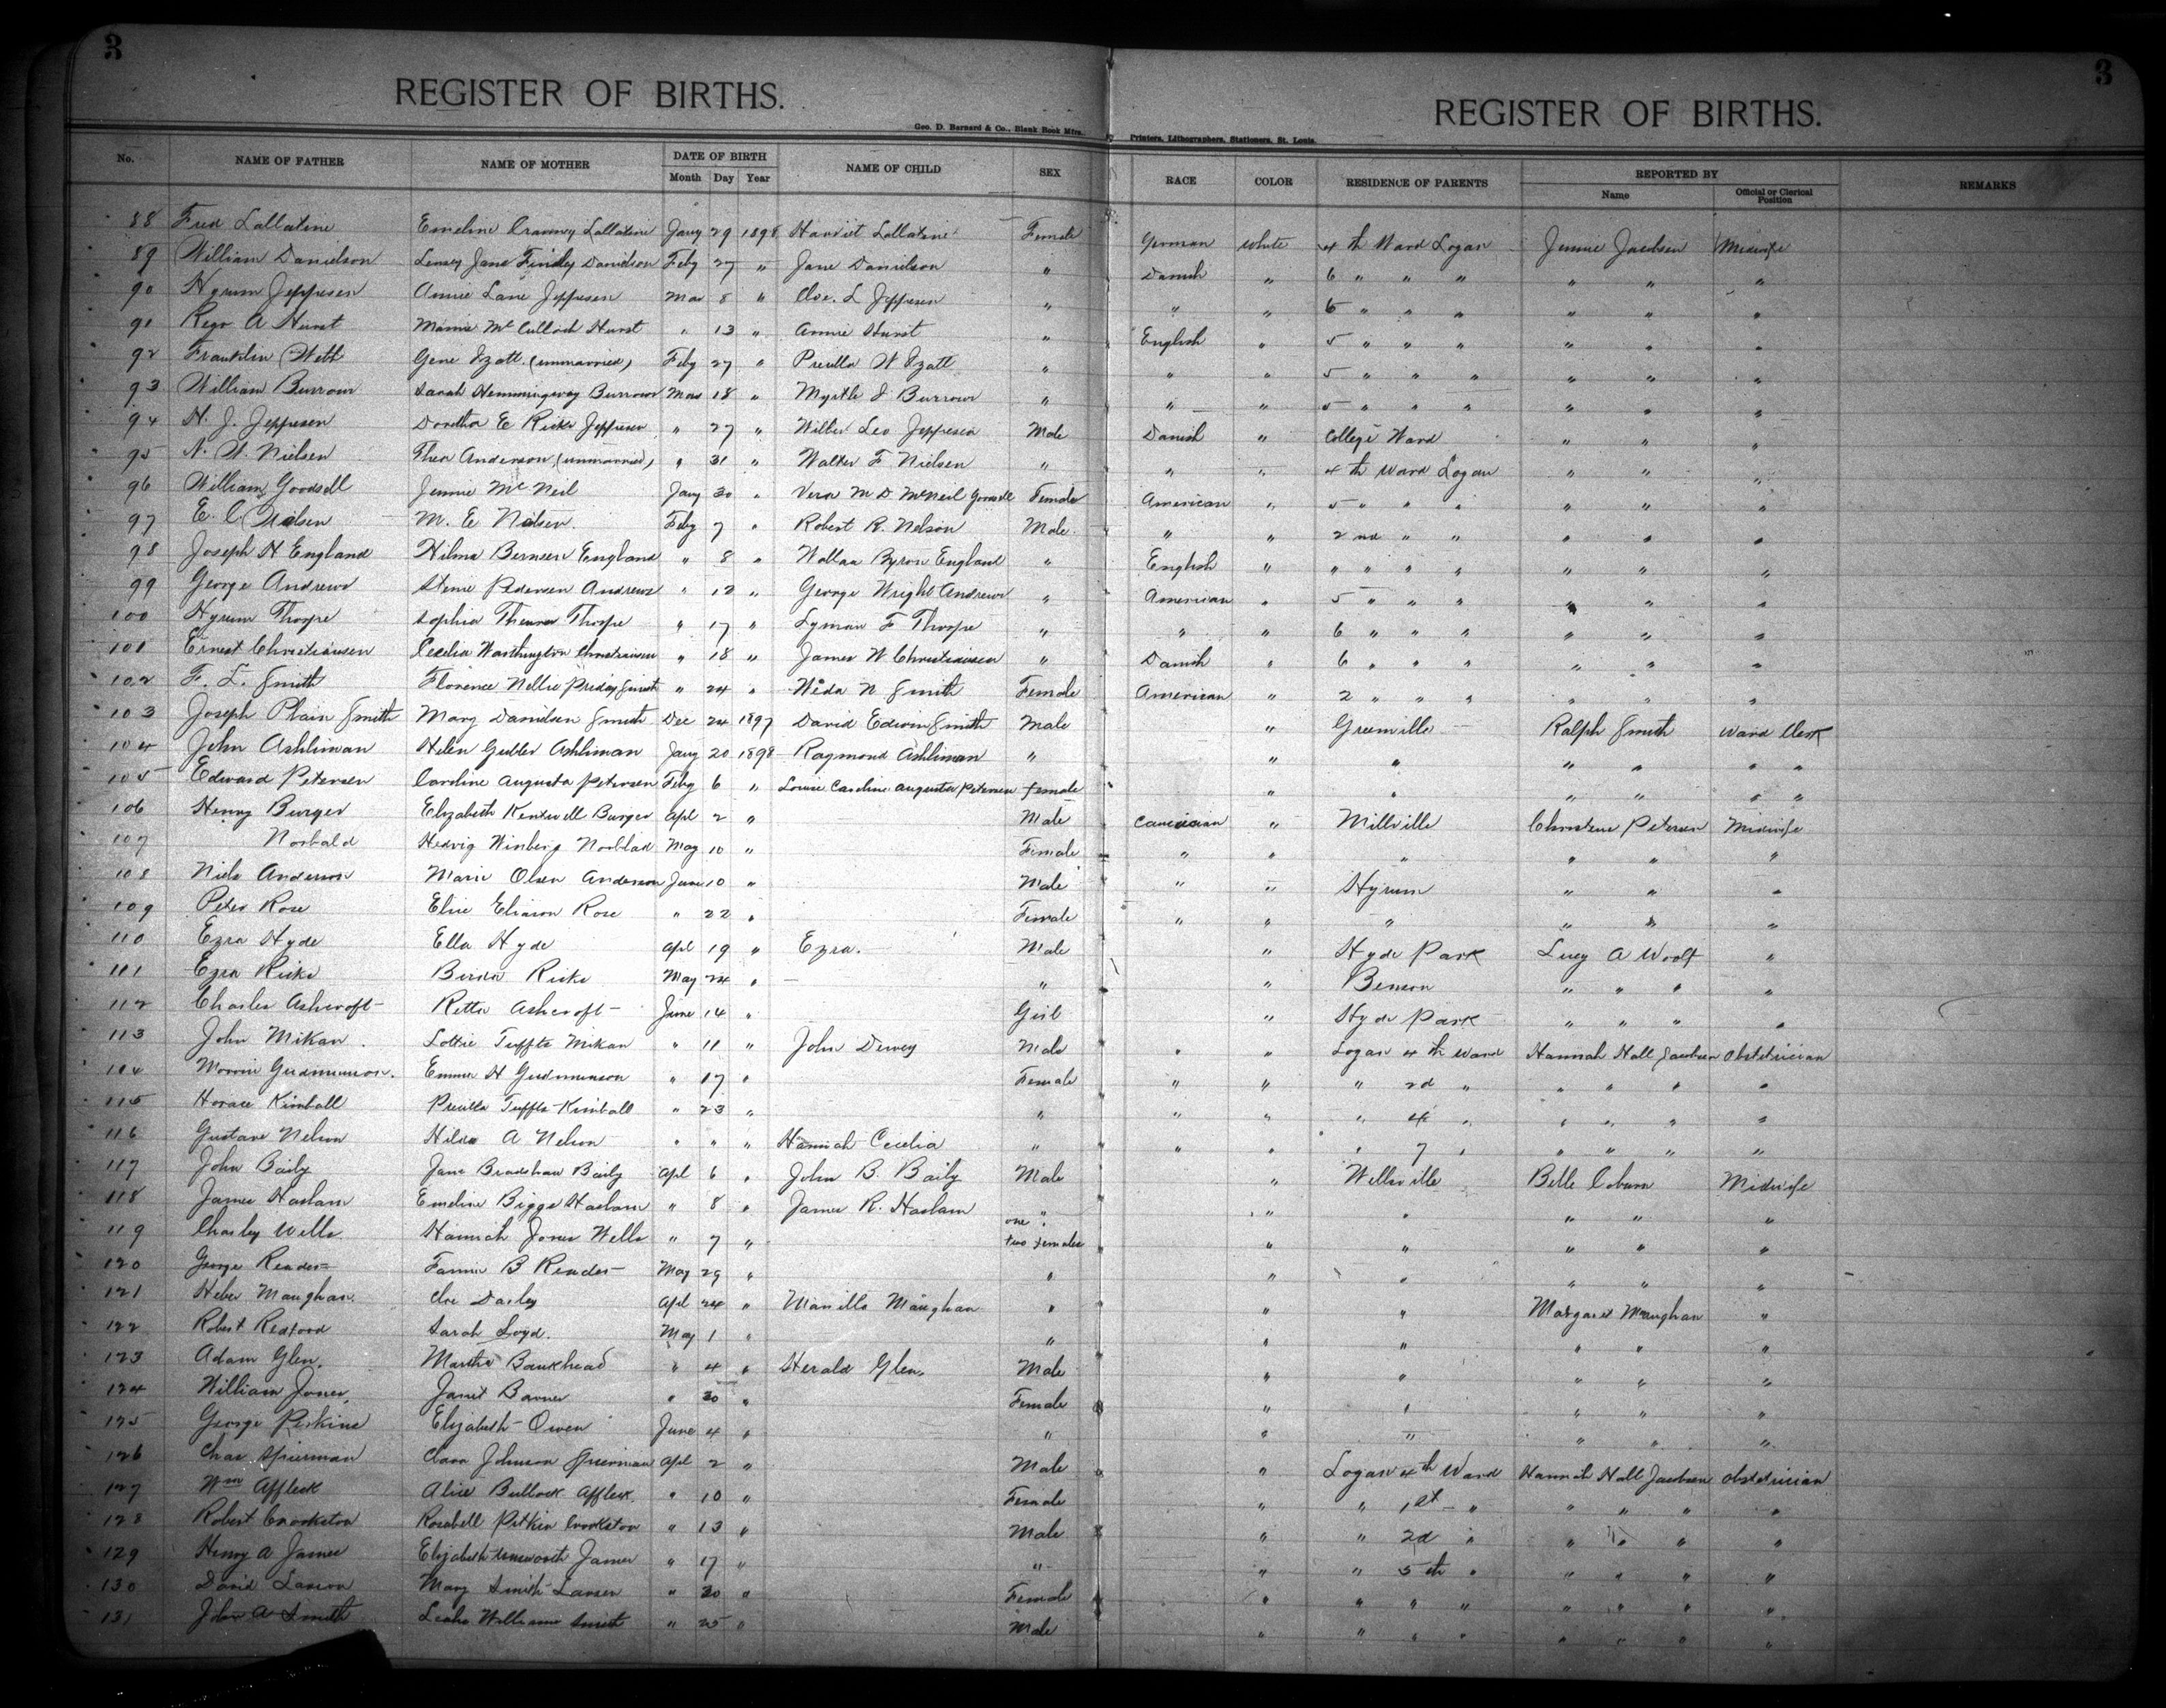 3
3
REGISTER OF BIRTHS.
REGISTER OF BIRTHS.
Geo. D. Barnard & Co., Blank Book Mfrs.
Printers, Lithographers, Stationers, St. Louis.
No. NAME OF FATHER NAME OF MOTHER DATE OF BIRTH NAME OF CHILD SEX RACE COLOR RESIDENCE OF PARENTS REPORTED BY REMARKS
Month Day Year Name Official or Clerical Position
88 Fred Lallatine Emeline Cranney Lallatine Jany 29 1898 Harriet Lallatine Female German White 4 th Ward Logan Jennie Jacobsen Midwife
89 William Danielson Jane Findley Danielson Feby 27 " Jane Danielson " Danish " 6 " " " " " "
90 Hyrum Jeppesen Annie Lane Jeppesen Mar 8 " L Jeppesen " " " 6 " " " " " "
91 A Hurst Mamie McCulloch Hurst " 13 " Annie Hurst " English " 5 " " " " " "
92 Franklin Webb Gene Izatt (unmarried) Feby 27 " W Izatt " " " 5 " " " " " "
93 William Burrows Sarah Hemmingway Burrows Mar 18 " Myrtle I Burrows " " " 5 " " " " " "
94 H. J. Jeppesen E Ricks Jeppesen " 27 " Leo Jeppesen Male Danish " College Ward " " "
95 N. W. Nielsen Thea Anderson (unmarried) " 31 " Walter F Nielsen " " " 4 th Ward Logan " " "
96 William Goodsell Jennie McNeil Jany 30 " Vera M D McNeil Goodsell Female American " 5 " " " " " "
97 E. C Nelsen M. E Nelsen Feby 7 " Robert R. Nelson Male " " 2 nd " " " " "
98 Joseph H England Hilma England " 8 " Byron England " English " " " " " " " "
99 George Andrews Pedersen Andrews " 12 " George Wright Andrews " American " 5 " " " " " "
100 Hyrum Thorpe Sophia Thorpe " 17 " Lyman F Thorpe " " " 6 " " " " " "
101 Ernest Christiansen Cecelia Worthington Christiansen " 18 " James W Christiansen " Danish " 6 " " " " " "
102 F. L. Smith Florence Nellie Priday Smith " 24 " N Smith Female American " 2 " " " " " "
103 Joseph Plain Smith Mary Danielsen Smith Dec 24 1897 David Edwin Smith Male " Greenville Ralph Smith Ward Clerk
104 John Ashliman Helen Ashliman Jany 20 1898 Raymond Ashliman " " " " " " "
105 Edward Petersen Caroline Augusta Petersen Feby 6 " Louise Caroline Augusta Petersen female " " " " " "
106 Henry Burger Elizabeth Burger Apl 2 " Male Caucasian " Millville Christene Petersen Midwife
107 Norbald Hedvig Winberg Norblad May 10 " Female " " " " " "
108 Niels Anderson Marie Olsen Anderson June 10 " Male " " Hyrum " " "
109 Peter Rose Elise Eliason Rose " 22 " Female " " " " " "
110 Ezra Hyde Ella Hyde Apl 19 " Ezra. Male " Hyde Park Lucy A Woolf "
111 Ezra Ricks Ricks May 24 " " " Benson " " " "
112 Charles Ashcroft Retta Ashcroft June 14 " Girl " Hyde Park " " " "
113 John Mikan Lottie Tuffts Mikan " 11 " John Dewey Male " " Logan 4 th Ward Hannah Hall Jacobsen Obstetrician
114 Gudmunson Emma H Gudmunson " 17 " Female " " " 2d " " " " "
115 Horace Kimball Tuffts Kimball " 23 " " " " " 4 " " " " "
116 Gustave Nelson Hilda A Nelson " " " Hannah Cecelia " " " " 7 " " " " "
117 John Baily Jane Bradshaw Baily Apl 6 " John B. Baily Male " Wellsville Belle Coburn Midwife
118 James Haslam Emeline Biggs Haslam " 8 " James R. Haslam " " " " " "
119 Charley Wells Hannah Jones Wells " 7 " one " two females " " " " "
120 George Reader Fannie B Reader May 29 " " " " " " "
121 Heber Maughan Darley Apl 24 " Manilla Maughan " " " Margaret Maughan "
122 Robert Redford Sarah Loyd. May 1 " " " " " " "
123 Adam Glen. Martha Bankhead " 4 " Herald Glen. Male " " " " "
124 William Jones Janet " 30 " Female " " " " "
125 George Perkins Elizabeth Owen June 4 " " " " " " "
126 Chas Spierman Clara Johnson Spierman Apl 2 " Male " Logan 4th Ward Hannah Hall Jacobsen Obstetrician
127 Wm Affleck Alice Bullock Affleck " 10 " Female " " 1st " " " " "
128 Robert Crookston Rosabell Pitkin Crookston " 13 " Male " " 2d " " " " "
129 Henry A James Elizabeth James " 17 " " " " 5 th " " " " "
130 David Larson Mary Smith Larsen " 30 " Female " " " " " " " "
131 John A Smith Williams Smith " 25 " Male " " " " " " " "